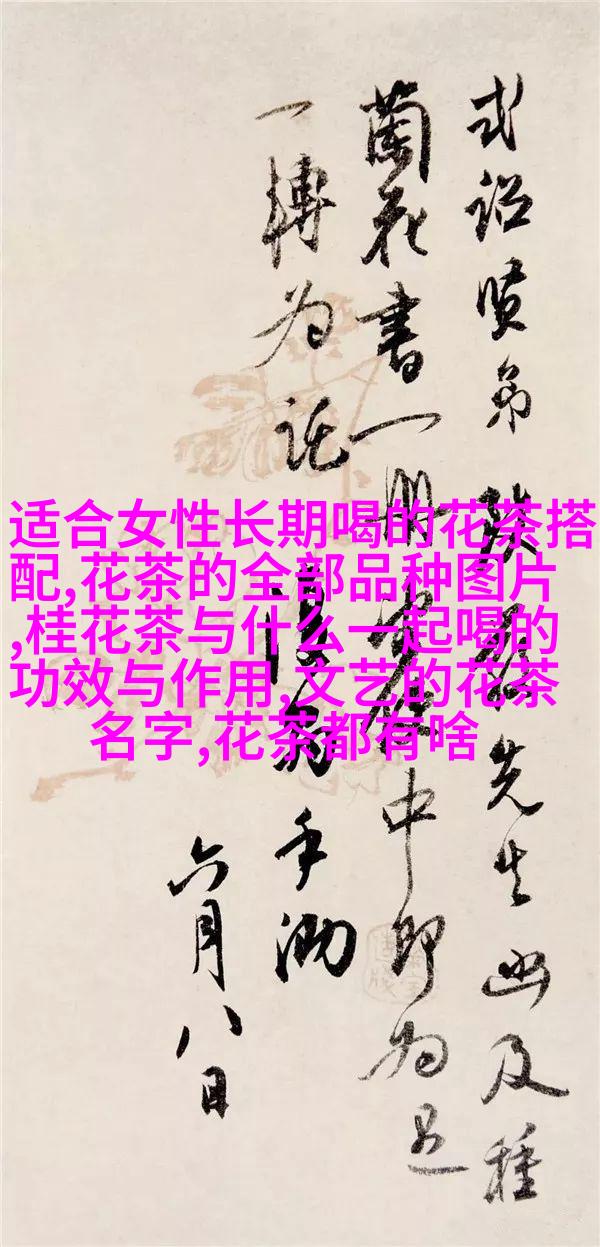 式詔贤弟 先生幽及種
蘭花書一册 中即为
一轉为託 手泐
六月八日
适合女性长期喝的花茶搭
配,花茶的全部品种图片
,桂花茶与什么一起喝的
功效与作用,文艺的花茶
名字,花茶都有啥